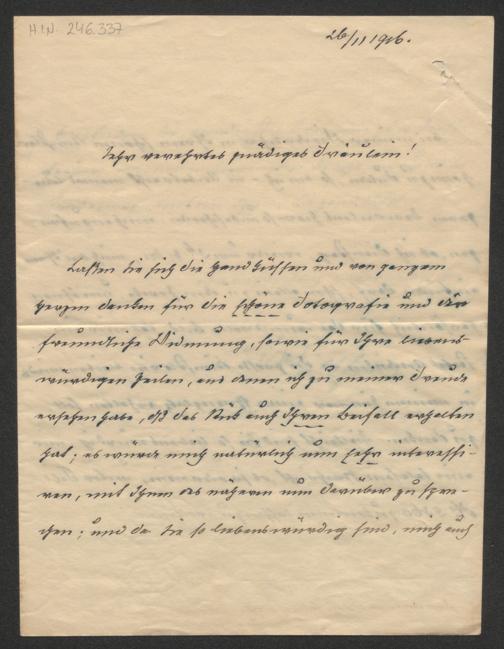 H.I.N. 246.337
26/11 1906.
Sehr verehrtes gnädiges Fräulein!
Laßen Sie sich die Hand küssen und von ganzem
Herzen danken für die schöne Fotografie und die
freundliche Widmung, sowie für Ihre liebens-
würdigen Zeilen, aus denen ich zu meiner Freude
ersehen habe, daß das Stück auch Ihren Beifall erhalten
hat; es würde mich natürlich nun sehr interessi-
ren, mit Ihnen des näheren nun darüber zu spre-
chen; und da Sie so liebenswürdig sind, mich auch